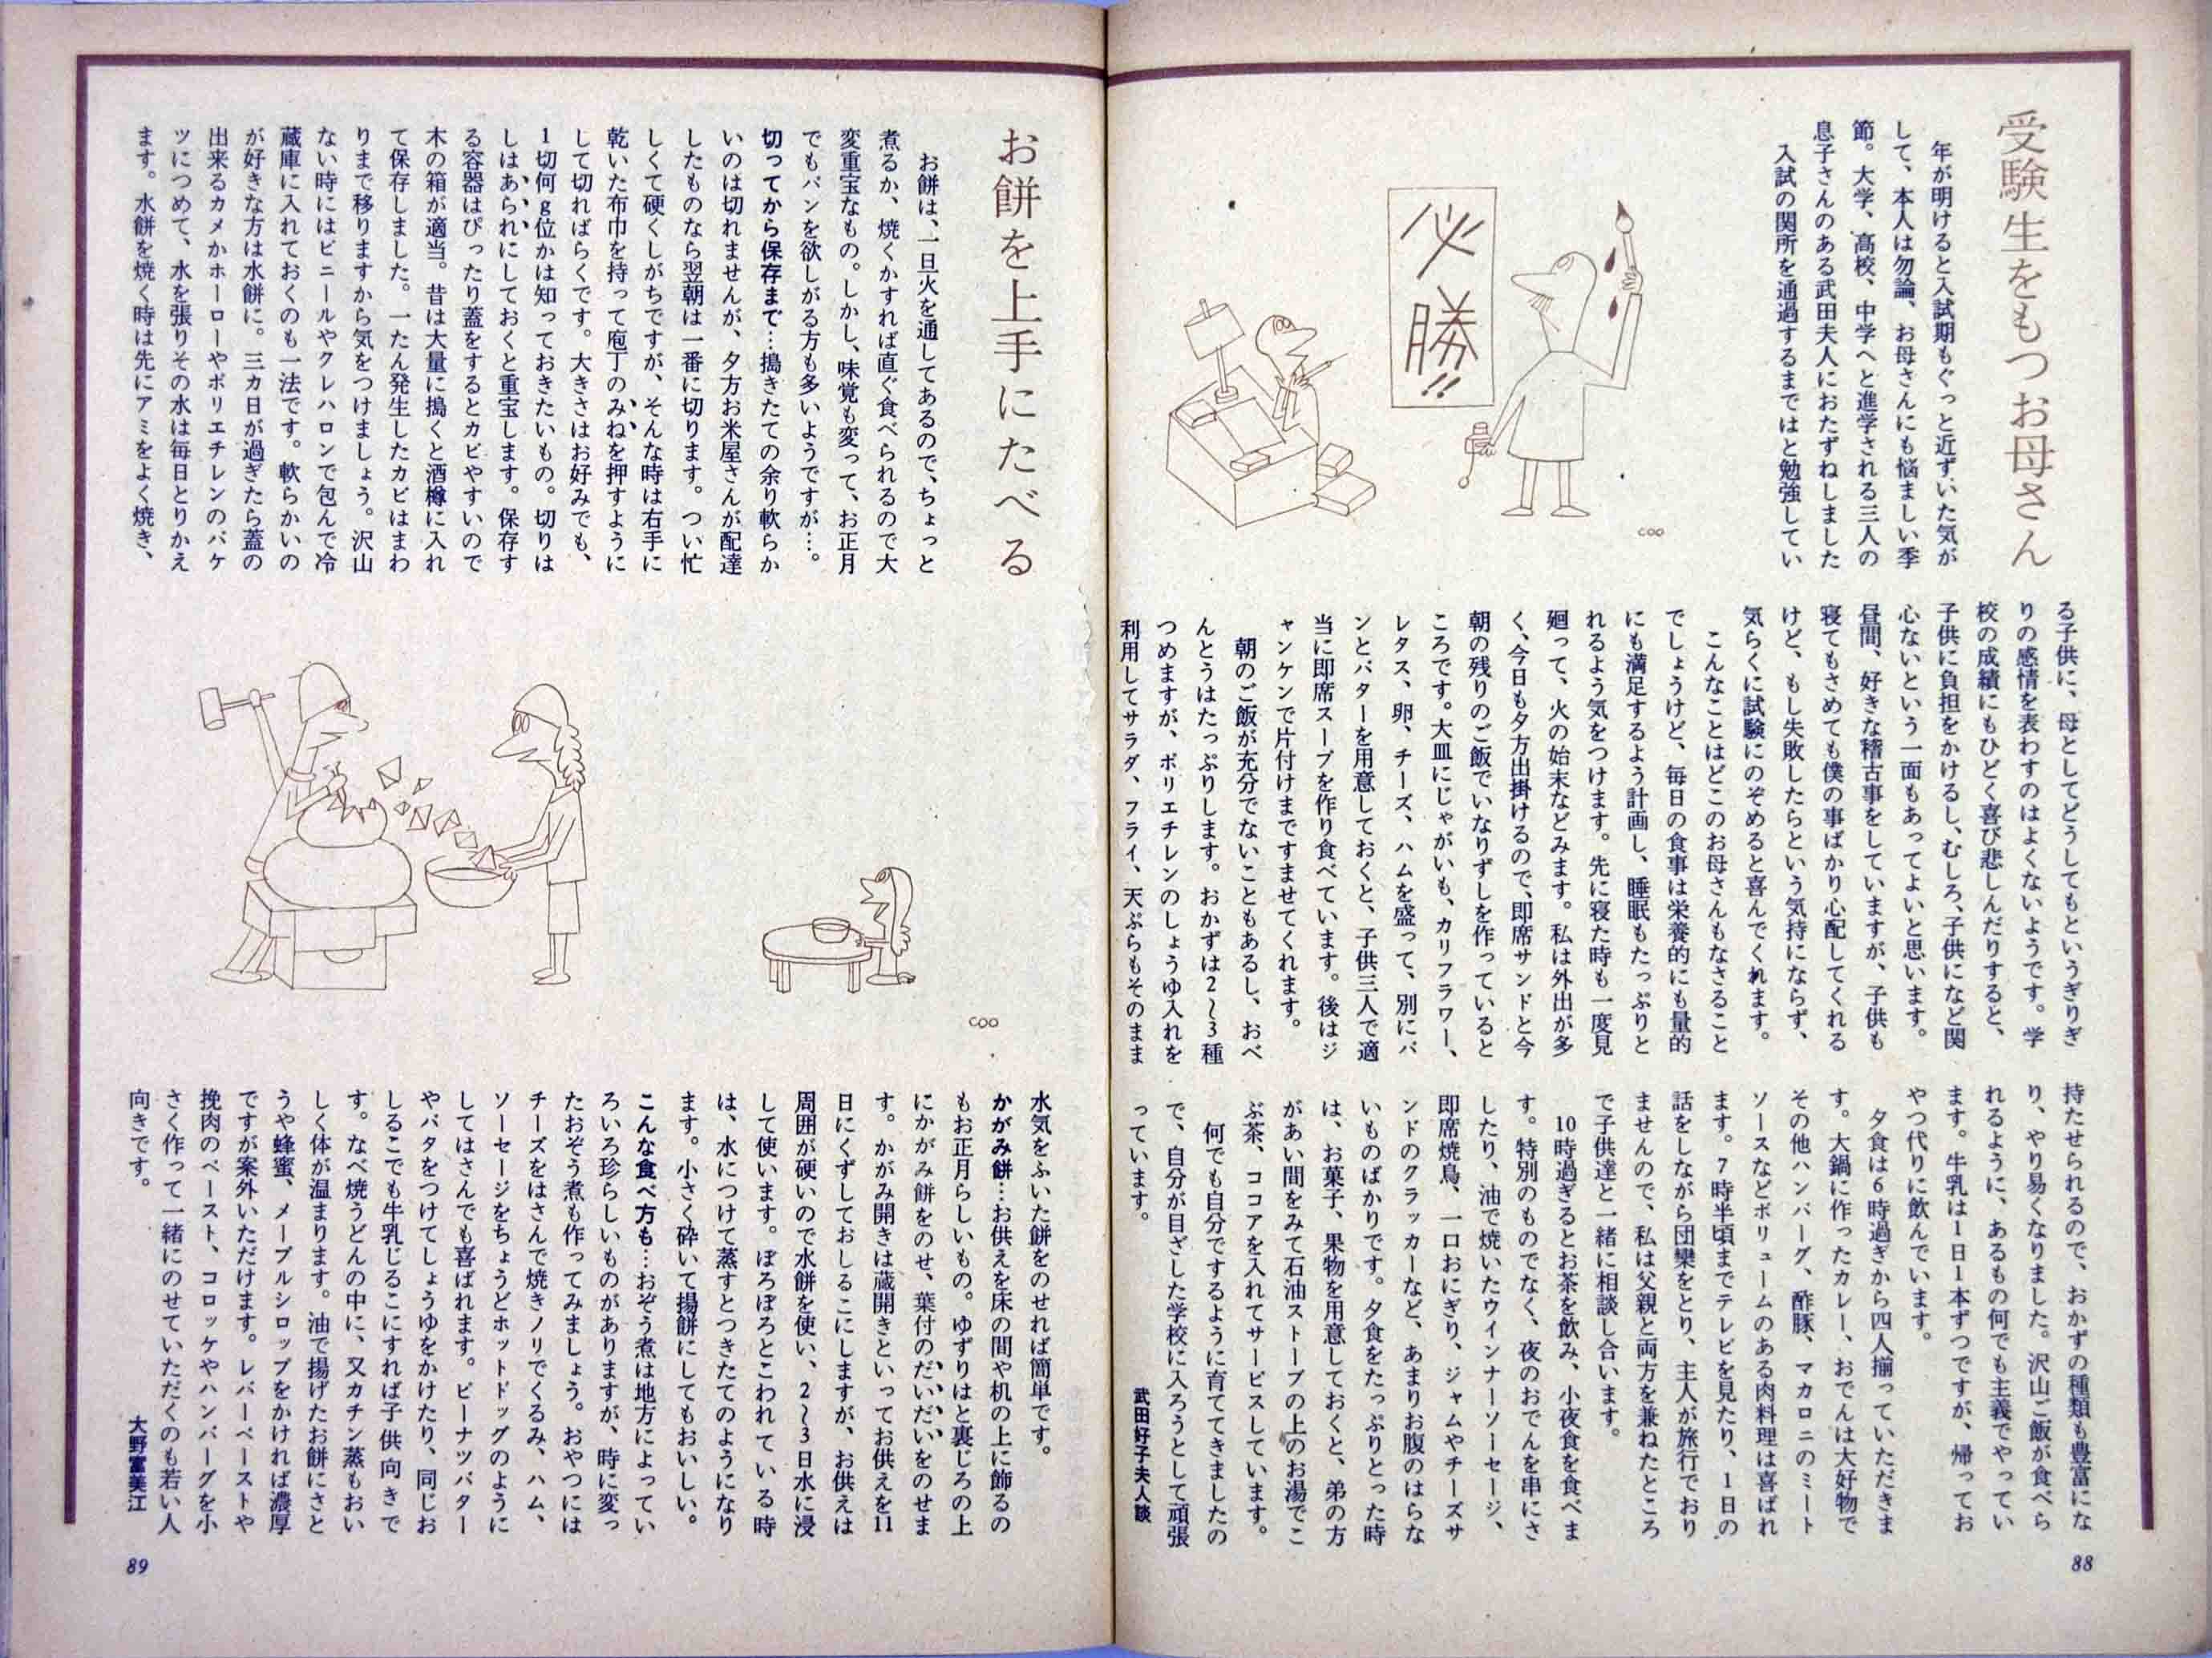 受験生をもつお母さん
年が明けると入試期もぐっと近ずいた気が
して、本人は勿論、お母さんにも悩ましい季
節。大学、高校、中学へと進学される三人の
息子さんのある武田夫人におたずねしました
入試の関所を通過するまではと勉強してい
必勝!!
COO
る子供に、母としてどうしてもというぎりぎ
りの感情を表わすのはよくないようです。学
校の成績にもひどく喜び悲しんだりすると、
子供に負担をかけるし、むしろ、子供になど関
心ないという一面もあってよいと思います。
昼間、好きな稽古事をしていますが、子供も
寝てもさめても僕の事ばかり心配してくれる
けど、もし失敗したらという気持にならず、
気らくに試験にのぞめると喜んでくれます。
こんなことはどこのお母さんもなさること
でしょうけど、毎日の食事は栄養的にも量的
にも満足するよう計画し、睡眠もたっぷりと
れるよう気をつけます。先に寝た時も一度見
廻って、火の始末などみます。私は外出が多
く、今日も夕方出掛けるので、即席サンドと今
朝の残りのご飯でいなりずしを作っていると
ころです。大皿にじゃがいも、カリフラワー、
レタス、卵、チーズ、ハムを盛って、別にパ
ンとバターを用意しておくと、子供三人で適
当に即席スープを作り食べています。後はジ
ャンケンで片付けまですませてくれます。
朝のご飯が充分でないこともあるし、おべ
んとうはたっぷりします。おかずは2〜3種
つめますが、ポリエチレンのしょうゆ入れを
利用してサラダ、フライ、天ぷらもそのまま
持たせられるので、おかずの種類も豊富にな
り、やり易くなりました。沢山ご飯が食べら
れるように、あるもの何でも主義でやってい
ます。牛乳は1日1本ずつですが、帰ってお
やつ代りに飲んでいます。
夕食は6時過ぎから四人揃っていただきま
す。大鍋に作ったカレー、おでんは大好物で
その他ハンバーグ、酢豚、マカロニのミート
ソースなどボリュームのある肉料理は喜ばれ
ます。7時半頃までテレビを見たり、1日の
話をしながら団欒をとり、主人が旅行でおり
ませんので、私は父親と両方を兼ねたところ
で子供達と一緒に相談し合います。
10時過ぎるとお茶を飲み、小夜食を食べま
す。特別のものでなく、夜のおでんを串にさ
したり、油で焼いたウインナーソーセージ、
即席焼鳥、一口おにぎり、ジャムやチーズサ
ンドのクラッカーなど、あまりお腹のはらな
いものばかりです。夕食をたっぷりとった時
は、お菓子、果物を用意しておくと、弟の方
があい間をみて石油ストーブの上のお湯でこ
ぶ茶、ココアを入れてサービスしています。
何でも自分でするように育ててきましたの
で、自分が目ざした学校に入ろうとして頑張
っています。
武田好子夫人談
88
お餅を上手にたべる
お餅は、一旦火を通してあるので、ちょっと
煮るか、焼くかすれば直ぐ食べられるので大
変重宝なもの。しかし、味覚も変って、お正月
でもパンを欲しがる方も多いようですが…。
切ってから保存まで…搗きたての余り軟らか
いのは切れませんが、夕方お米屋さんが配達
したものなら翌朝は一番に切ります。つい忙
しくて硬くしがちですが、そんな時は右手に
乾いた布巾を持って庖丁のみねを押すように
して切ればらくです。大きさはお好みでも、
1切何g位かは知っておきたいもの。切りは
しはあられにしておくと重宝します。保存す
る容器はぴったり蓋をするとカビやすいので
木の箱が適当。昔は大量に搗くと酒樽に入れ
て保存しました。一たん発生したカビはまわ
りまで移りますから気をつけましょう。沢山
ない時にはビニールやクレハロンで包んで冷
蔵庫に入れておくのも一法です。軟らかいの
が好きな方は水餅に。三カ日が過ぎたら蓋の
出来るカメかホーローやポリエチレンのバケ
ツにつめて、水を張りその水は毎日とりかえ
ます。水餅を焼く時は先にアミをよく焼き、
COO
水気をふいた餅をのせれば簡単です。
かがみ餅…お供えを床の間や机の上に飾るの
もお正月らしいもの。ゆずりはと裏じろの上
にかがみ餅をのせ、葉付のだいだいをのせま
す。かがみ開きは蔵開きといってお供えを11
日にくずしておしるこにしますが、お供えは
周囲が硬いので水餅を使い、2〜3日水に浸
して使います。ぼろぼろとこわれている時
は、水につけて蒸すとつきたてのようになり
ます。小さく砕いて揚餅にしてもおいしい。
こんな食べ方も…おぞう煮は地方によってい
ろいろ珍らしいものがありますが、時に変っ
たおぞう煮も作ってみましょう。おやつには
チーズをはさんで焼きノリでくるみ、ハム、
ソーセージをちょうどホットドッグのように
してはさんでも喜ばれます。ピーナツバター
やバタをつけてしょうゆをかけたり、同じお
しるこでも牛乳じるこにすれば子供向きで
す。なべ焼うどんの中に、又カチン蒸もおい
しく体が温まります。油で揚げたお餅にさと
うや蜂蜜、メープルシロップをかければ濃厚
ですが案外いただけます。レバーペーストや
挽肉のペースト、コロッケやハンバーグを小
さく作って一緒にのせていただくのも若い人
向きです。
大野富美江
89